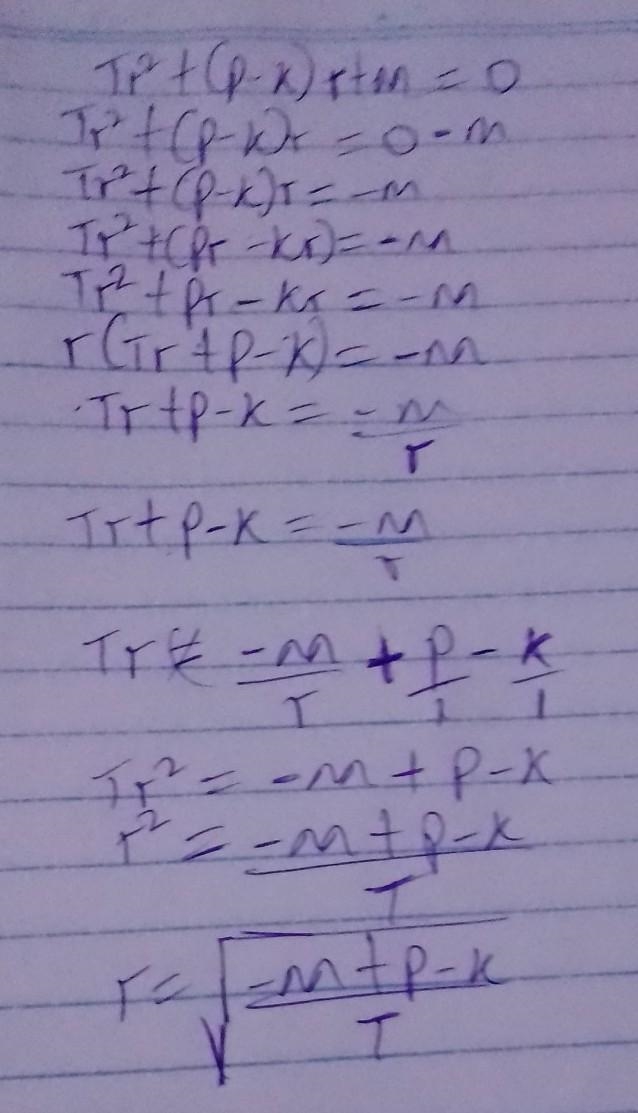 Tr² + (p-k)r+m = 0
Tr² + (p-k)r = 0 - m
Tr² + (p-k)r = -m
Tr² + (pr - kr) = -m
Tr² + pr - kr = -m
r(Tr + p-k) = -m
Tr + p-k = -m/r
Tr + p-k = -m/r
Tr ≠ -m/r + p/1 - k/1
Tr² = -m + p-k
r² = (-m + p-k)/T
r = √((-m + p-k)/T)